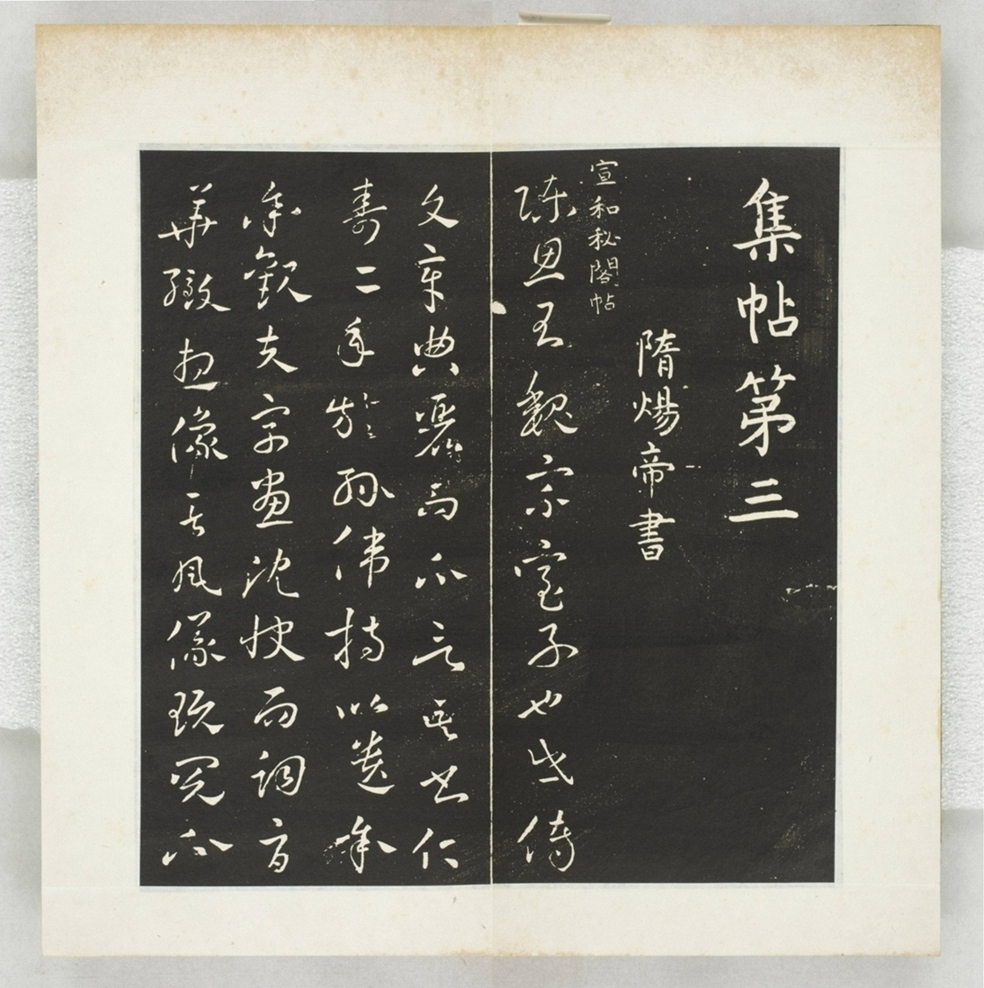 集帖第三
隋煬帝書
宣和秘閣帖
陳思王魏宗室子也世傳
文章典麗而不言其書仁
壽二年族孫偉持以遺余
余觀夫字畫沈快而詞旨
華緻想像其風儀玩閱不